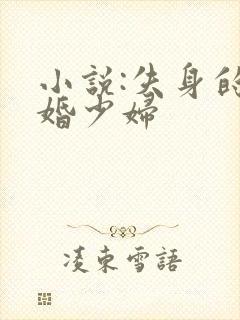 小說:失身的
婚少婦
凌束雪語